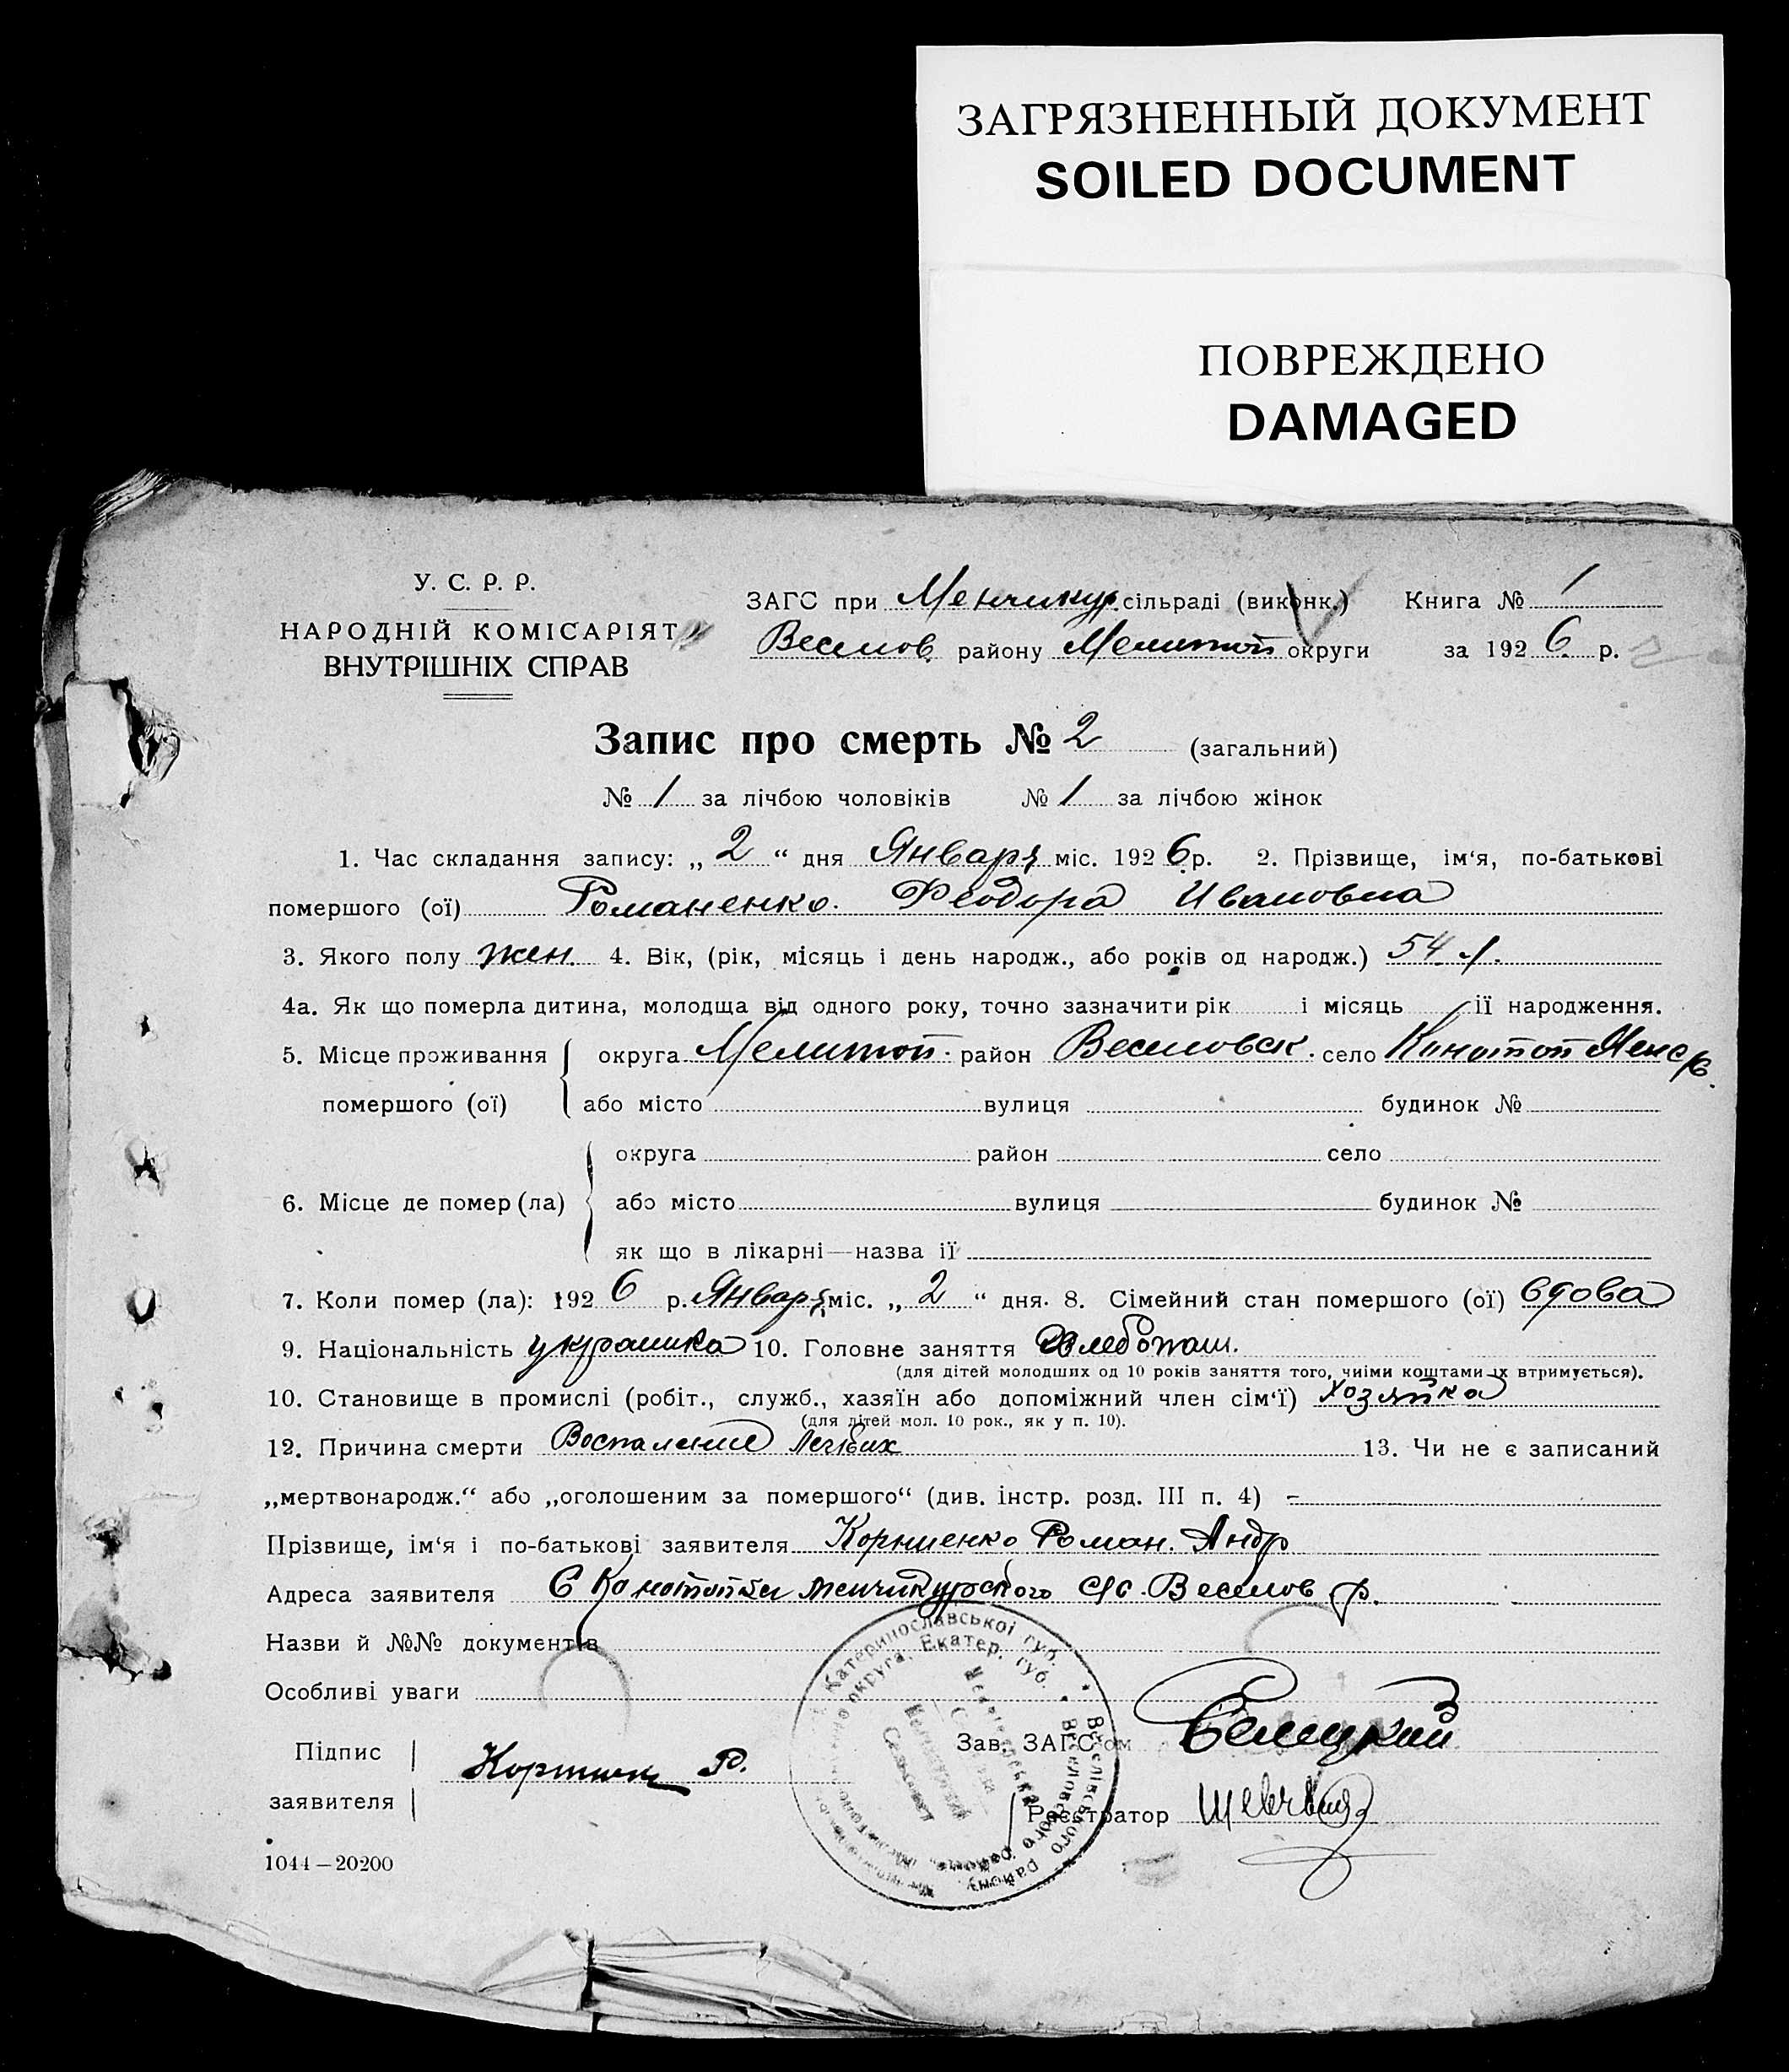 ЗАГРЯЗНЕННЫЙ ДОКУМЕНТ
SOILED DOCUMENT
ПОВРЕЖДЕНО
DAMAGED
У. С. Р. Р.
НАРОДНІЙ КОМІСАРІЯТ
ВНУТРІШНІХ СПРАВ
ЗАГС при Менчикур. сільраді (виконк.) Книга № 1
Веселов. району Мелитоп округи за 1926 р.
Запис про смерть № 2 (загальний)
№ 1 за лічбою чоловіків № 1 за лічбою жінок
1. Час складання запису: „ 2 “ дня Января міс. 1926 р. 2. Прізвище, ім‘я, по-батькові
помершого (ої) Романенко Феодора Ивановна
3. Якого полу жен. 4. Вік, (рік, місяць і день народж., або років од народж.) 54 л.
4а. Як що померла дитина, молодща від одного року, точно зазначити рік і місяць ії народження.
5. Місце проживання округа Мелитоп. район Веселовск. село Конотоп
помершого (ої) або місто вулиця будинок №
округа район село
6. Місце де помер (ла) або місто вулиця будинок №
як що в лікарні—назва ії
7. Коли помер (ла): 1926 р. Января міс. „ 2 “ дня. 8. Сімейний стан помершого (ої) вдова
9. Національність украинка 10. Головне заняття Хлебопаш.
(для дітей молодших од 10 років заняття того, чиїми коштами їх втримується).
10. Становище в промислі (робіт., служб., хазяїн або допоміжний член сім‘ї) хозяйка
(для дітей мол. 10 рок., як у п. 10).
12. Причина смерти Воспаление легких 13. Чи не є записаний
„мертвонародж.“ або „оголошеним за помершого“ (див. інстр. розд. III п. 4) –
Прізвище, ім‘я і по-батькові заявителя Роман. Андр
Адреса заявителя С Менчикурского с/с. Веселов р.
Назви й №№ документів
Особливі уваги
Катеринославської губ. • Веселівського району
округа, Екатер. губ. • Веселовского района
Підпис
заявителя
Р.
Зав. ЗАГС‘ом
Реєстратор
1044—20200